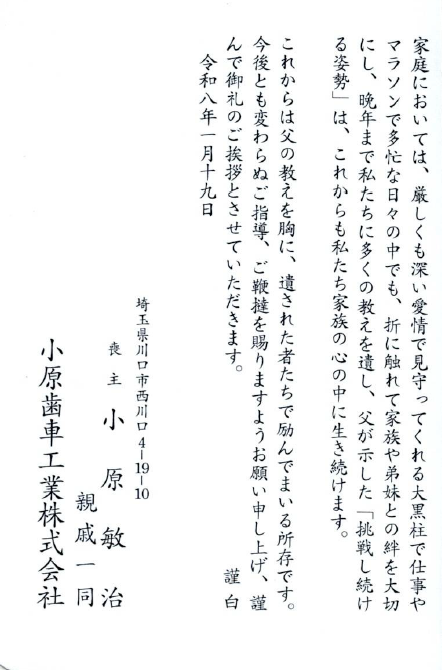 家庭においては、厳しくも深い愛情で見守ってくれる大黒柱で仕事や
マラソンで多忙な日々の中でも、折に触れて家族や弟妹との絆を大切
にし、晩年まで私たちに多くの教えを遺し、父が示した「挑戦し続け
る姿勢」は、これからも私たち家族の心の中に生き続けます。
これからは父の教えを胸に、遺された者たちで励んでまいる所存です。
今後とも変わらぬご指導、ご鞭撻を賜りますようお願い申し上げ、謹
んで御礼のご挨拶とさせていただきます。
謹白
令和八年一月十九日
埼玉県川口市西川口4-19-10
喪主 小原敏治
親戚一同
小原歯車工業株式会社